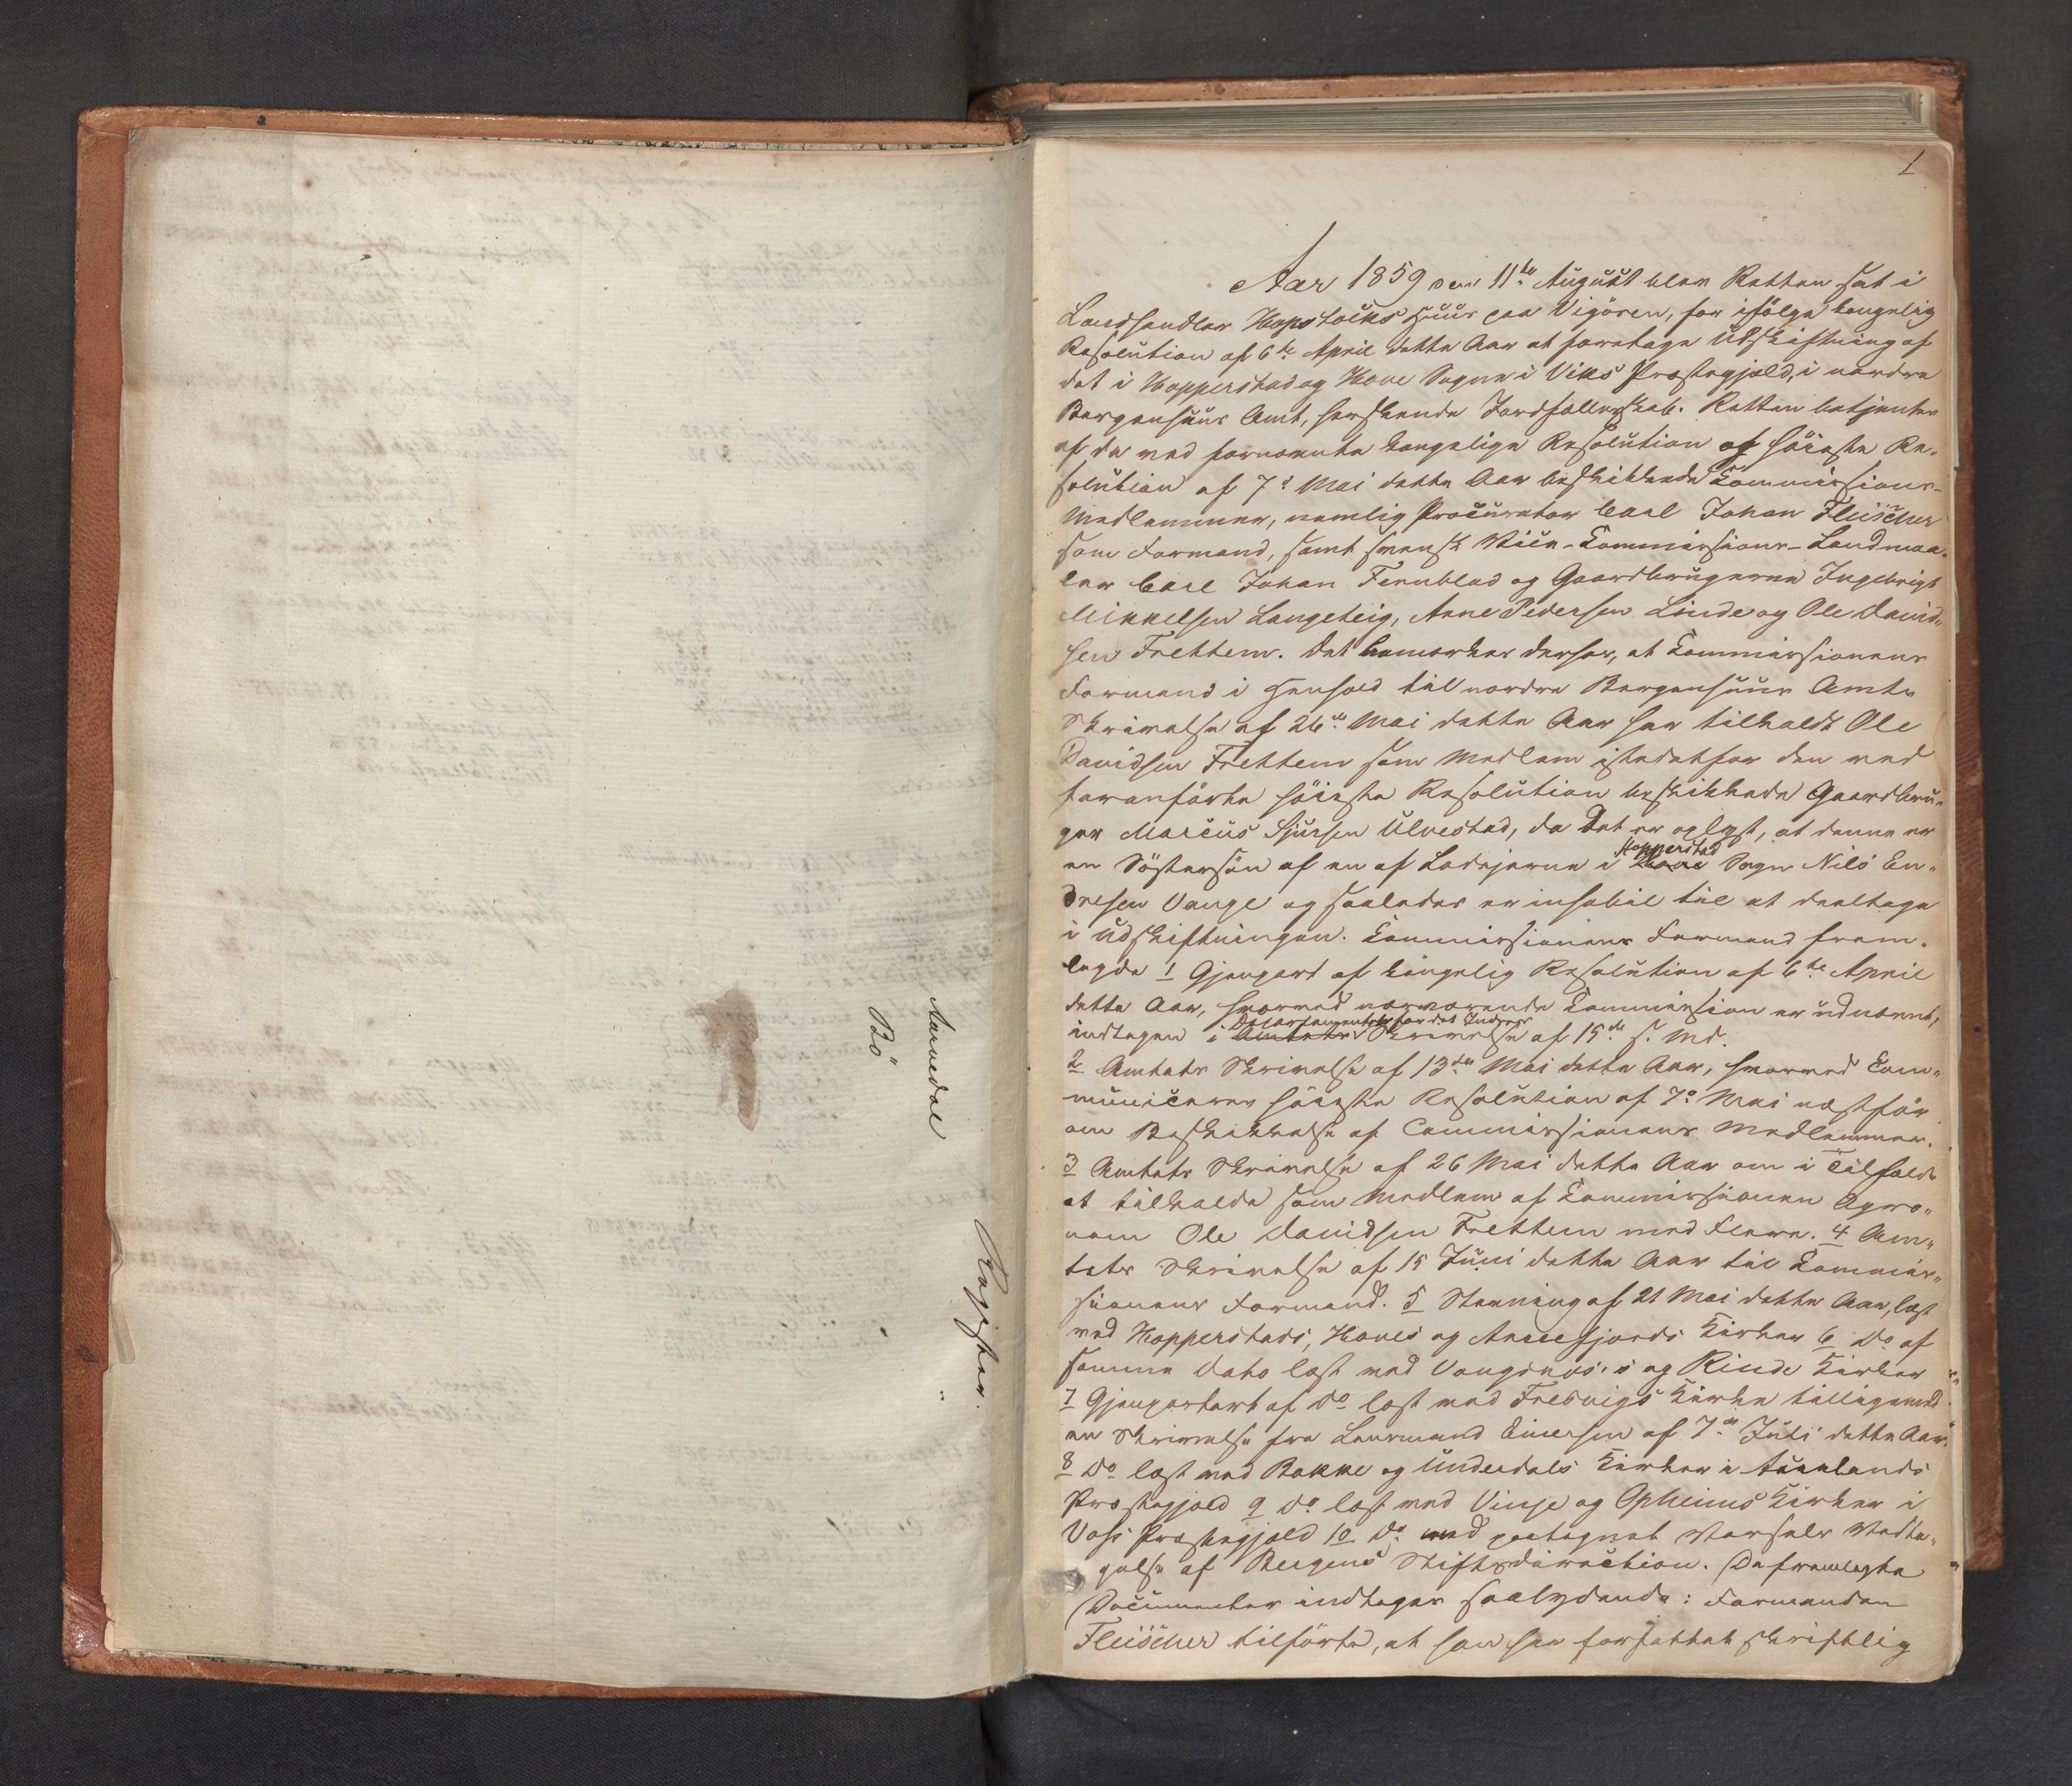 Register.
Aarnedal
Bö
1
Aar 1859 den 11te August blev Retten sat i
Landhandler Hopstocks Huus paa Vigören, for ifölge kongelig
Resolution af 6te April dette Aar at foretage Udskiftning af
det i Hopperstad og Hove Sogne i Viks Præstegjeld, i nordre
Bergenhuus Amt, herskende Jordfællesskab. Retten betjentes
af de ved fornævnte kongelige Resolution og höieste Re-
solution af 7de Mai dette Aar beskikkede Kommissions-
Medlemmer, nemlig Procurator Carl Johan Fleischer
som Formand, samt svensk Vice-Kommissions-Landmaa-
ler Carl Johan Fernblad og Gaardbrugerne Ingebrigt
Mikkelsen Langeteig, Arne Pedersen Linde og Ole David-
sen Frettem. Det bemærkes derhos, at Kommissionens
Formand i Henhold til nordre Bergenhuus Amts
Skrivelse af 26de Mai dette Aar har tilkaldt Ole
Davidsen Frettem som Medlem istedetfor den ved
foranförte höieste Resolution beskikkede Gaardbru-
ger Marcus Sjursen Ulvestad, da det er oplyst, at denne er
en Söstersön af en af Lodejerne i Hove Hopperstad Sogn Nils En-
dresen Vange og saaledes er inhabil til at deeltage
i Udskiftningen. Kommissionens Formand frem-
lagde 1 Gjenpart af kongelig Resolution af 6te April
dette Aar, hvorved nærværende Kommission er udnævnt,
indtagen i Amtets Departementet for det Indres Skrivelse af 15de s. Md.
2 Amtets Skrivelse af 13de Mai dette Aar, hvorved Com-
municeres höieste Resolution af 7de Mai næstför
om Beskikkelse af Commissionens Medlemmer.
3 Amtets Skrivelse af 26 Mai dette Aar om i Tilfælde
at tilkalde som Medlem af Kommissionen Agro-
nom Ole Davidsen Frettem med Flere. 4 Am-
tets Skrivelse af 15 Juni dette Aar til Kommis-
sionens Formand. 5 Stævning af 21 Mai dette Aar, læst
ved Hopperstads, Hoves og Arnefjords Kirker 6 Do af
samme Dato læst ved Vangsnæs's og Rinde Kirker
7 Gjenpartert af Do læst ved Fresvigs Kirke tilligemed
en Skrivelse fra Lensmand Eiversen af 7de Juli dette Aar.
8 Do læst ved Bakke og Underdals Kirker i Aurlands
Præstegjeld 9 Do læst ved Vinje og Opheims Kirker i
Voss Præstegjeld 10 Do med paategnet Varsels Vedta-
gelse af Bergens Stiftsdirection. De fremlagte
Documenter indtages saalydende: Formanden
Fleischer tilförte, at han har forfattet skriftlig